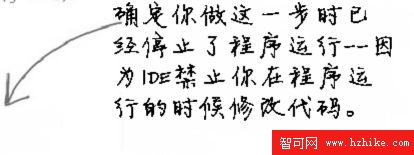 确定你做这一步时已
经停止了程序运行--因
为IDE禁止你在程序运
行的时候修改代码。
智可网
www.hzhike.com